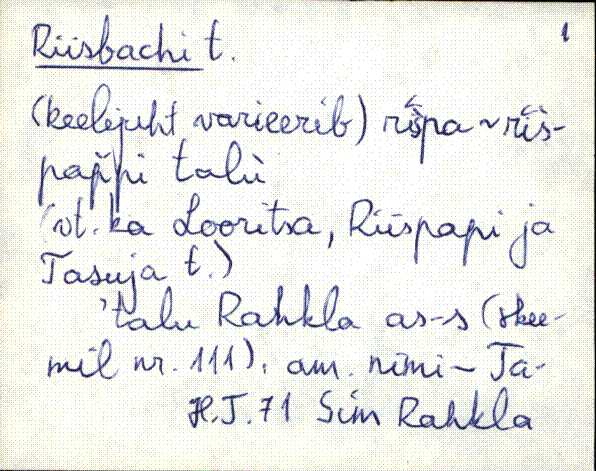 1
Riisbachi t.
(keelejuht varieerib) rīspa ~ rīs-
pappi talù
(vt. ka Looritsa, Riispapi ja
Tasuja t.)
'talu Rahkla as-s (skee-
mil nr. 111). am. nimi - Ta-
H.J. 71 Sim Rahkla